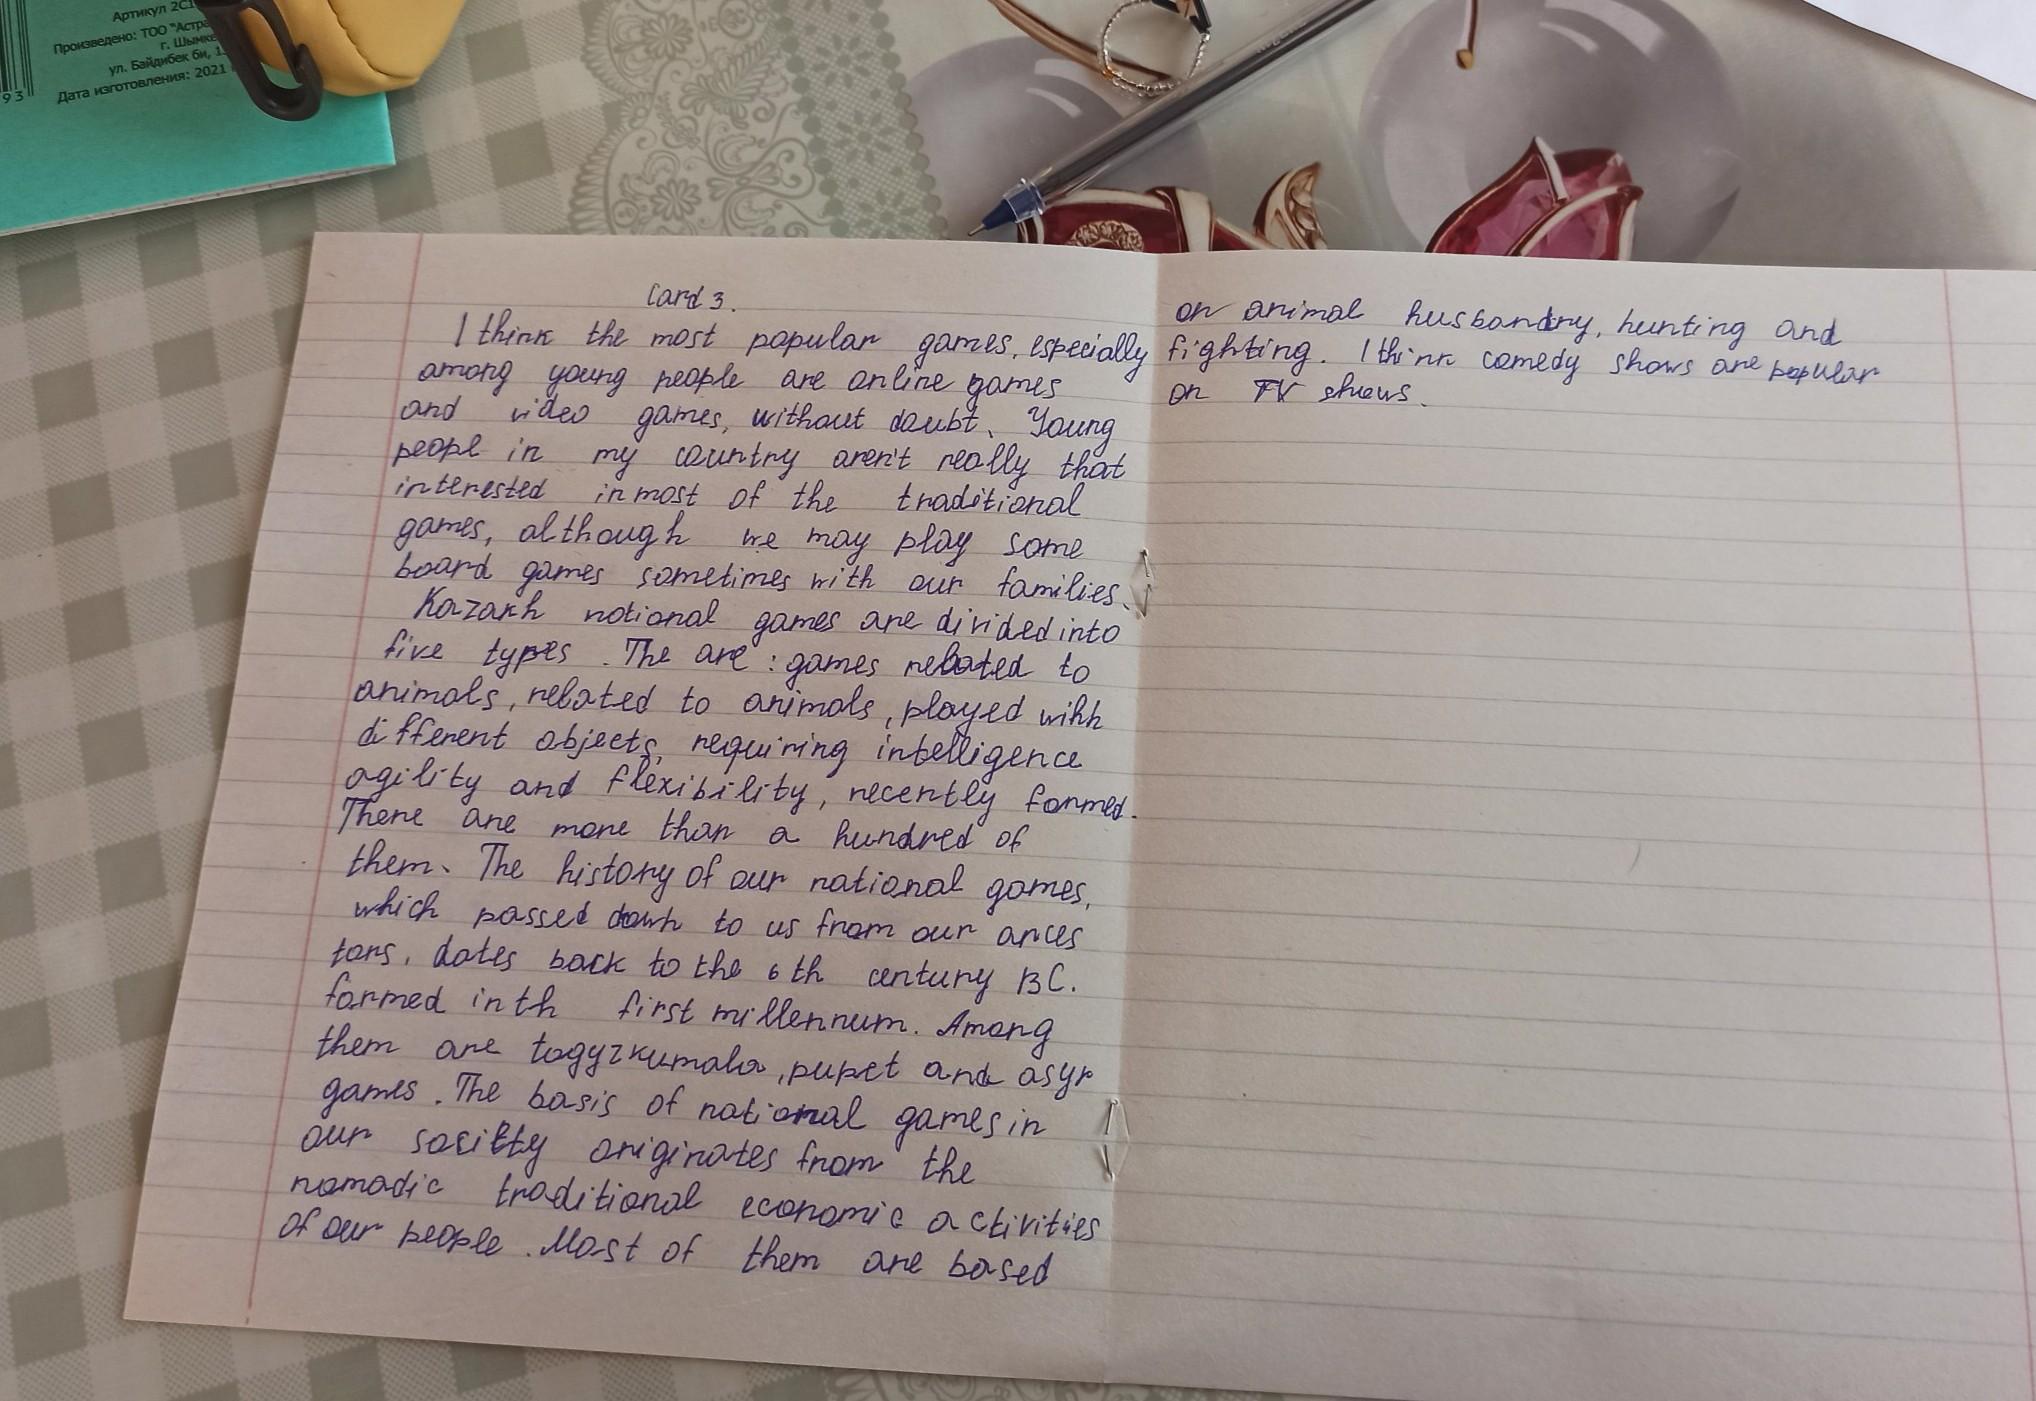 Артикул 2С1
Произведено: ТОО "Астра
г. Шымке
ул. Байдибек би, 1
Дата изготовления: 2021
93
Card 3.
I think the most popular games, especially
among young people are online games
and video games, without doubt. Young
people in my country aren't really that
interested in most of the traditional
games, although we may play some
board games sometimes with our families.
Kazakh national games are divided into
five types. The are: games rebated to
animals, rebated to animals, played wihh
different objects, requiring intelligence
agility and flexibility, recently formed.
There are more than a hundred of
them. The history of our national games,
which passed down to us from our ances
tors, dates back to the 6th century BC.
formed in th first millennum. Among
them are togyzkumala, pupet and asyk
games. The basis of national games in
our originates from the
nomadic traditional economic activities
of our people. Most of them are based
on animal husbandry, hunting and
fighting. I think comedy shows are popular
on TV shows.